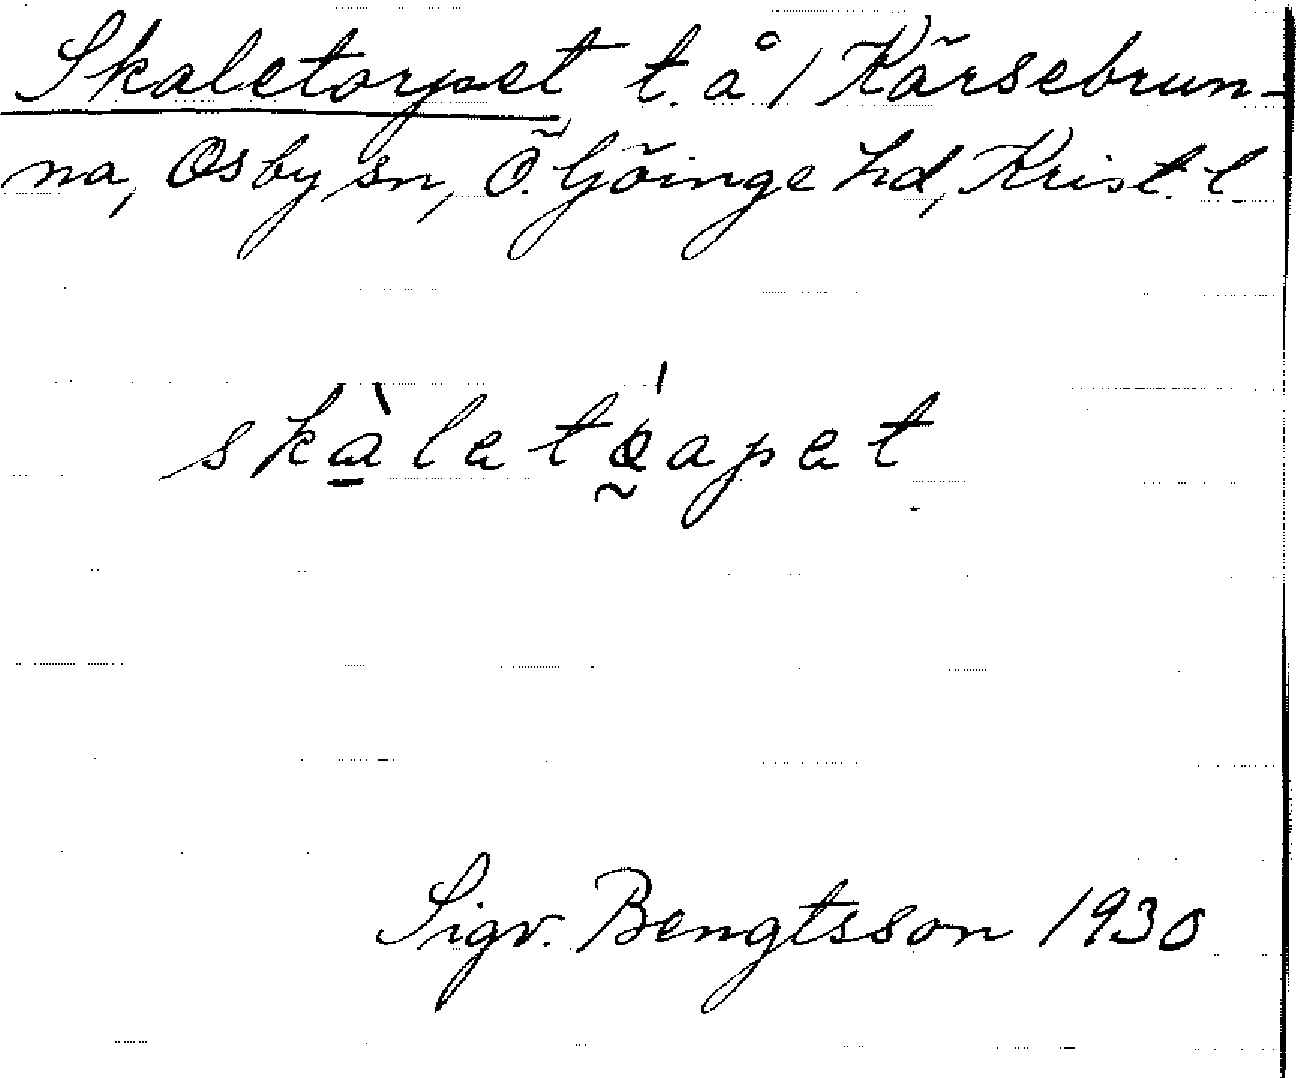 Skaletorpet t. å 1 Kärsebrun-
na, Osby sn, Ö. Göinge hd, Krist. l
skàletǿapet
Sigv. Bengtsson 1930